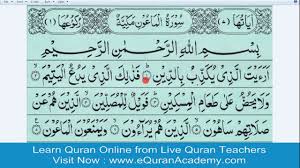 اٰيَاتُهَا (٧) سُوْرَةُ الْمَاعُوْنِ مَكِّيَّةٌ رُكُوْعُهَا (١)
بِسْمِ اللّٰهِ الرَّحْمٰنِ الرَّحِيْمِ
اَرَءَيْتَ الَّذِيْ يُكَذِّبُ بِالدِّيْنِ ﴿١﴾ فَذٰلِكَ الَّذِيْ يَدُعُّ الْيَتِيْمَ ﴿٢﴾
وَلَا يَحُضُّ عَلٰى طَعَامِ الْمِسْكِيْنِ ﴿٣﴾ فَوَيْلٌ لِّلْمُصَلِّيْنَ ﴿٤﴾ الَّذِيْنَ هُمْ عَنْ
صَلَاتِهِمْ سَاهُوْنَ ﴿٥﴾ الَّذِيْنَ هُمْ يُرَآءُوْنَ ﴿٦﴾ وَيَمْنَعُوْنَ الْمَاعُوْنَ ﴿٧﴾
Learn Quran Online from Live Quran Teachers
Visit Now : www.eQuranAcademy.com